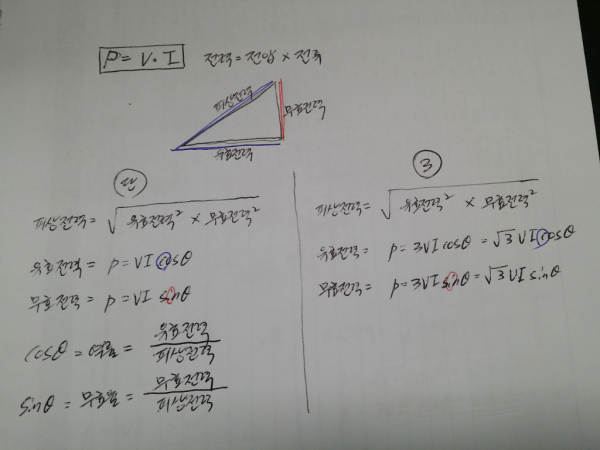 P = V · I 전력 = 전압 × 전류
피상전력
무효전력
유효전력
단
피상전력 = √유효전력² × 무효전력²
유효전력 = P = VI cosθ
무효전력 = P = VI sinθ
cosθ = 역률 = 유효전력 / 피상전력
sinθ = 무효율 = 무효전력 / 피상전력
3
피상전력 = √유효전력² × 무효전력²
유효전력 = P = 3VI cosθ = √3 VI cosθ
무효전력 = P = 3VI sinθ = √3 VI sinθ